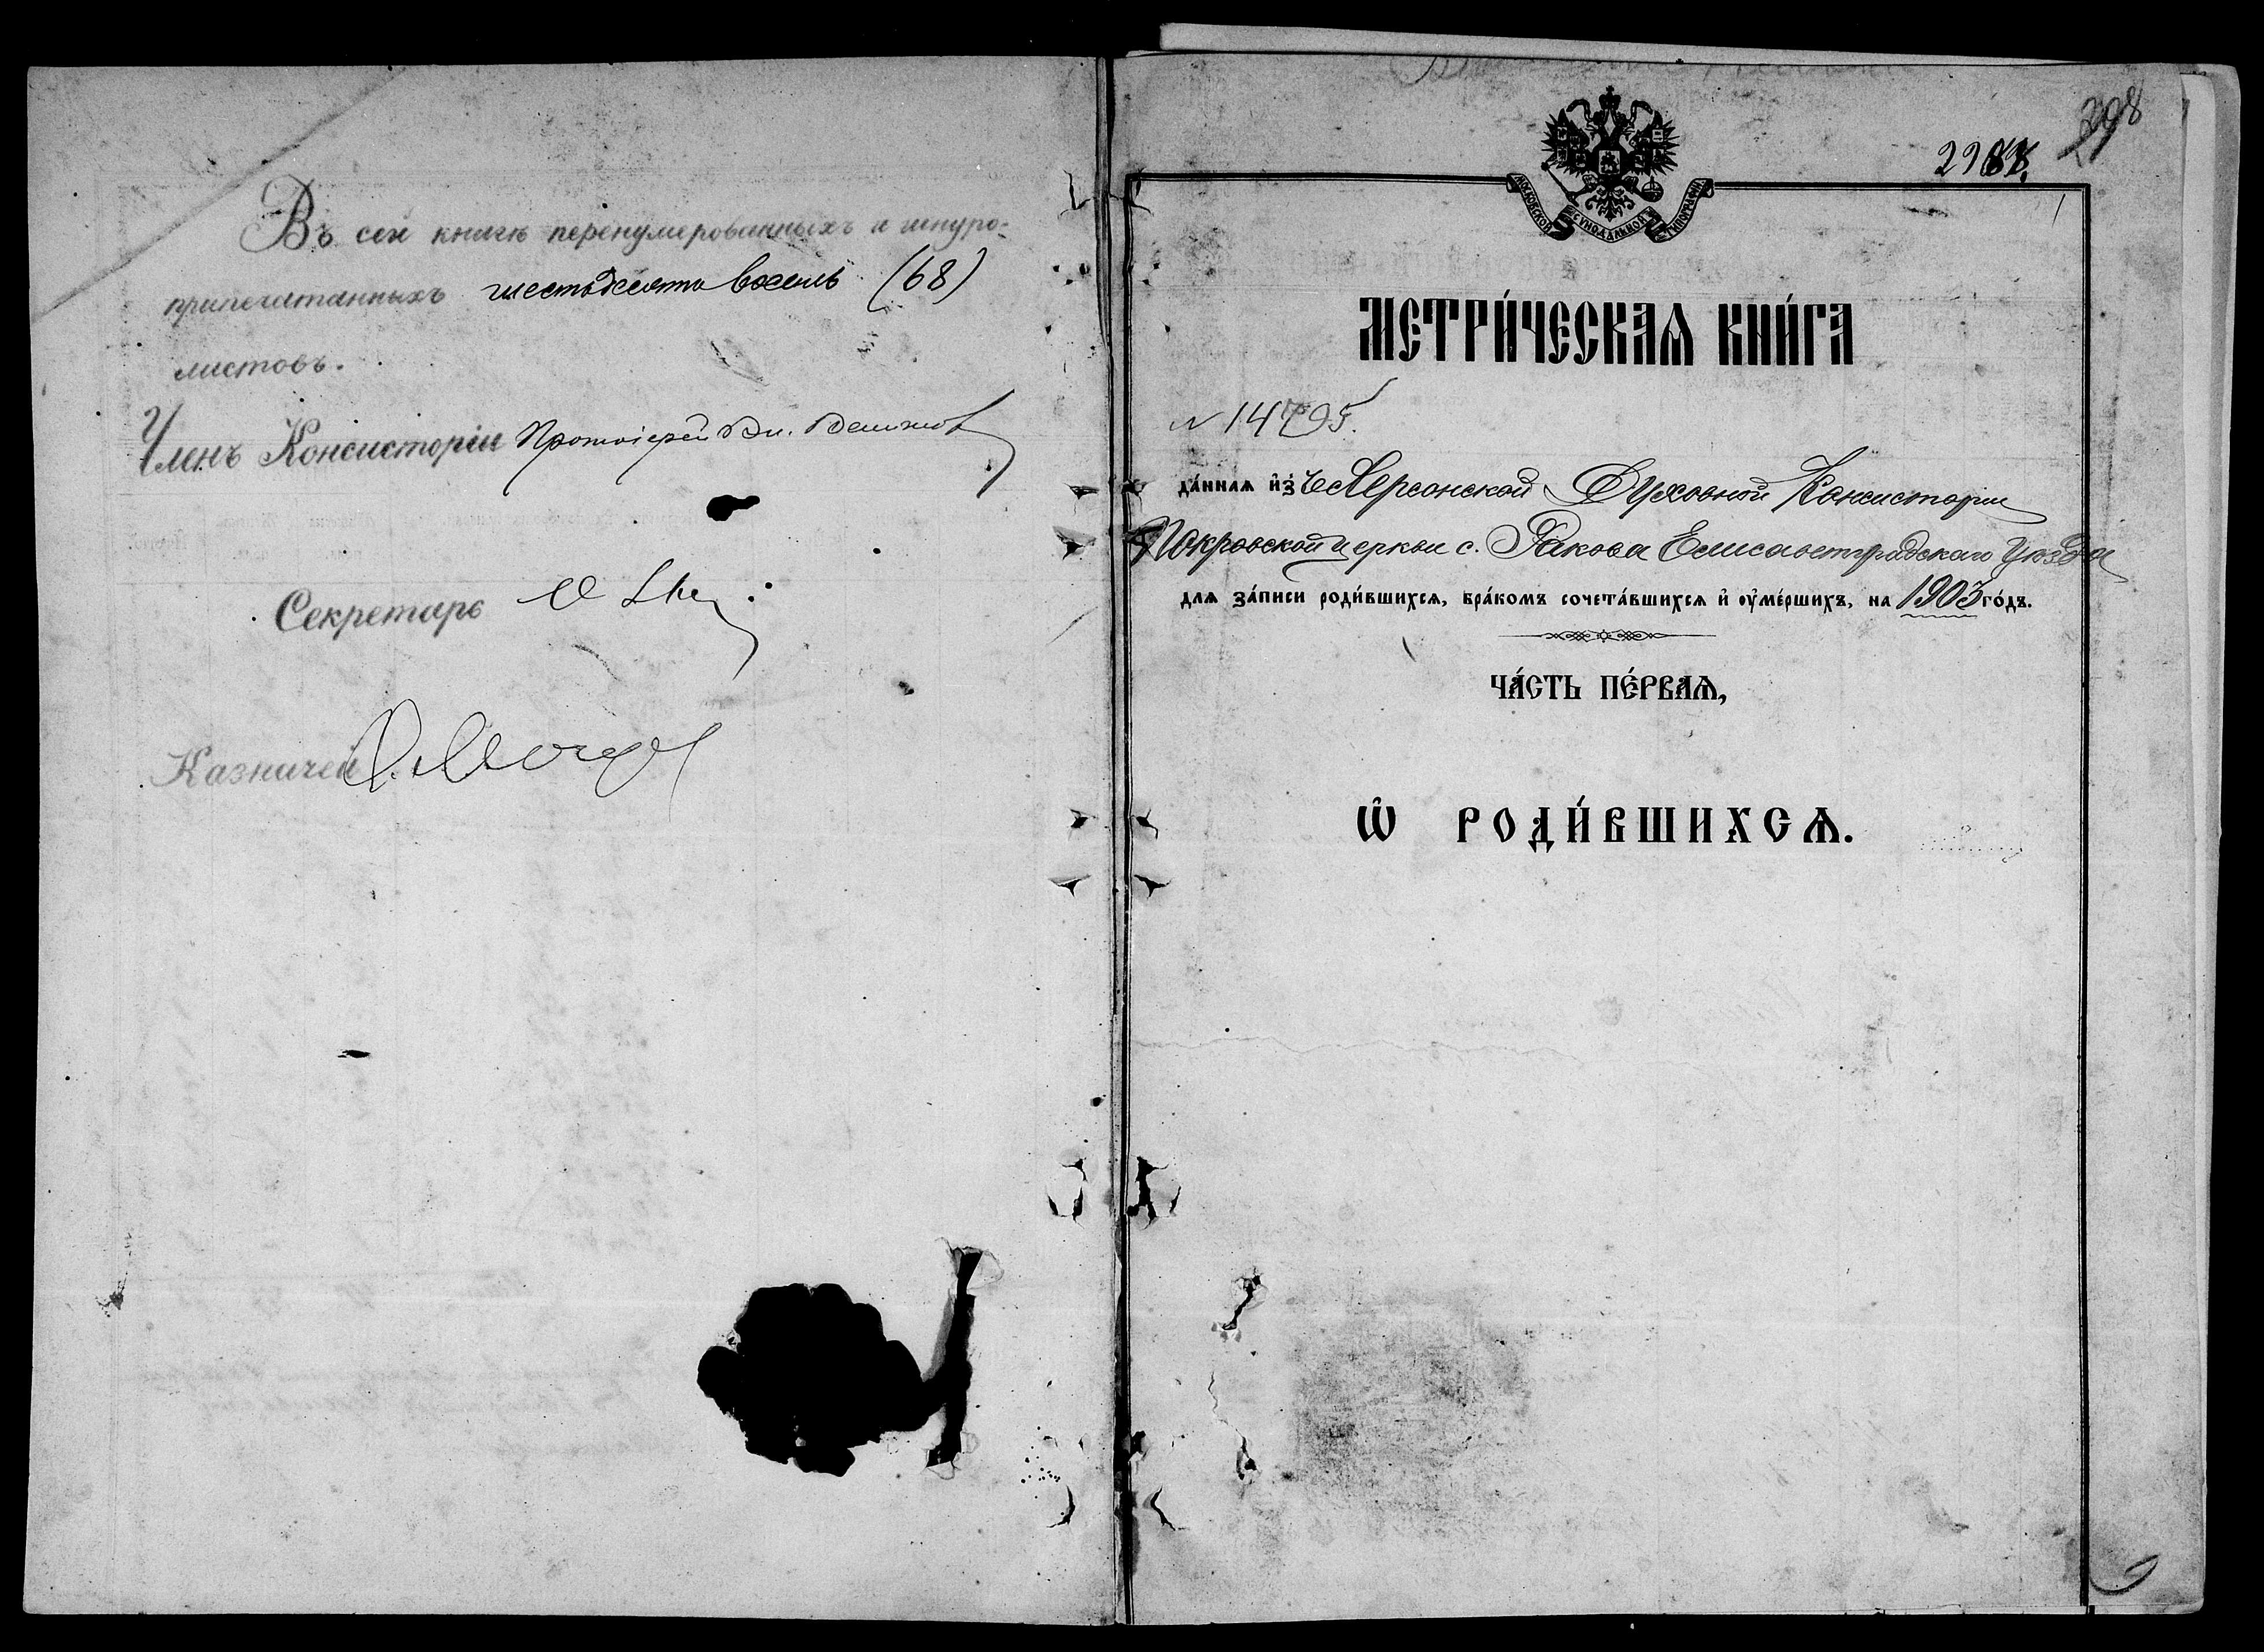 Въ сей книгѣ перенумерованныхъ и шнуро-
припечатанныхъ шестьдесятъ восемь (68)
листовъ.
Членъ Консисторіи Протоіерей
Секретарь
Казначей
298
МОСКОВСКОЙ СѴНОДАЛЬНОЙ ТИПОГРАФІИ
МЕТРИ́ЧЕСКАѦ КНИ́ГА
N 14795.
да́ннаѧ и҆зъ Херсонской Духовной Консисторіи
Покровской церкви с. Ракова Елисаветградскаго уѣзда
длѧ за́писи роди́вшихсѧ, бра́комъ сочета́вшихсѧ и҆ ᲂу҆ме́ршихъ, на 1903 го́дъ.
ЧА́СТЬ ПЕ́РВАѦ,
Ѡ҆ РОДИ́ВШИХСѦ.